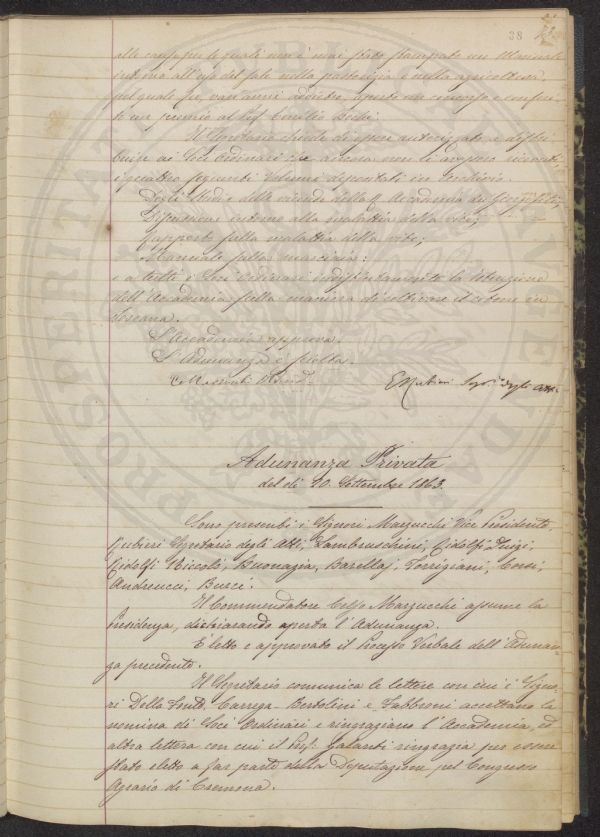 38
alle cause per le quali non è mai stato stampato un Manuale
intorno all'uso del sale nella pastorizia e nella agricoltura,
pel quale fu, vari anni addietro, aperto un concorso e conferi-
to un premio al Sig. Emilio Bechi.
Il Segretario chiede di essere autorizzato a distri-
buire ai Soci Ordinari che ancora non li avessero ricevuti,
i quattro seguenti Volumi depositati in Archivio.
Degli Studi e delle vicende della R. Accademia dei Georgofili;
Istruzioni intorno alla malattia della vite;
Rapporto sulla malattia della vite;
Manuale sulla
e a tutti i Soci Ordinari indistintamente la Istruzione
dell'Accademia sulla maniera di coltivare il cotone in
Toscana.
L'Accademia approva.
L'Adunanza è sciolta.
E. Rubieri Seg.º degli Atti
Adunanza Privata
del dì 20. Settembre 1863.
Sono presenti i Signori Marzucchi Vice Presidente,
Rubieri Segretario degli Atti, Lambruschini, Ridolfi Luigi,
Ridolfi Niccolò, Buonazia, Barellaj, Torrigiani, Corsi,
Andreucci, Busci.
Il Commendatore Celso Marzucchi assume la
Presidenza, dichiarando aperta l'Adunanza.
È letto e approvato il Processo Verbale dell'Adunan-
za precedente.
Il Segretario comunica le lettere con cui i Signo-
ri Della Carrega Bertolini e Fabbroni accettano la
nomina di Soci Ordinari e ringraziano l'Accademia, ed
altra lettera con cui il Prof. Galanti ringrazia per essere
stato eletto a far parte della Deputazione pel Congresso
Agrario di Cremona.